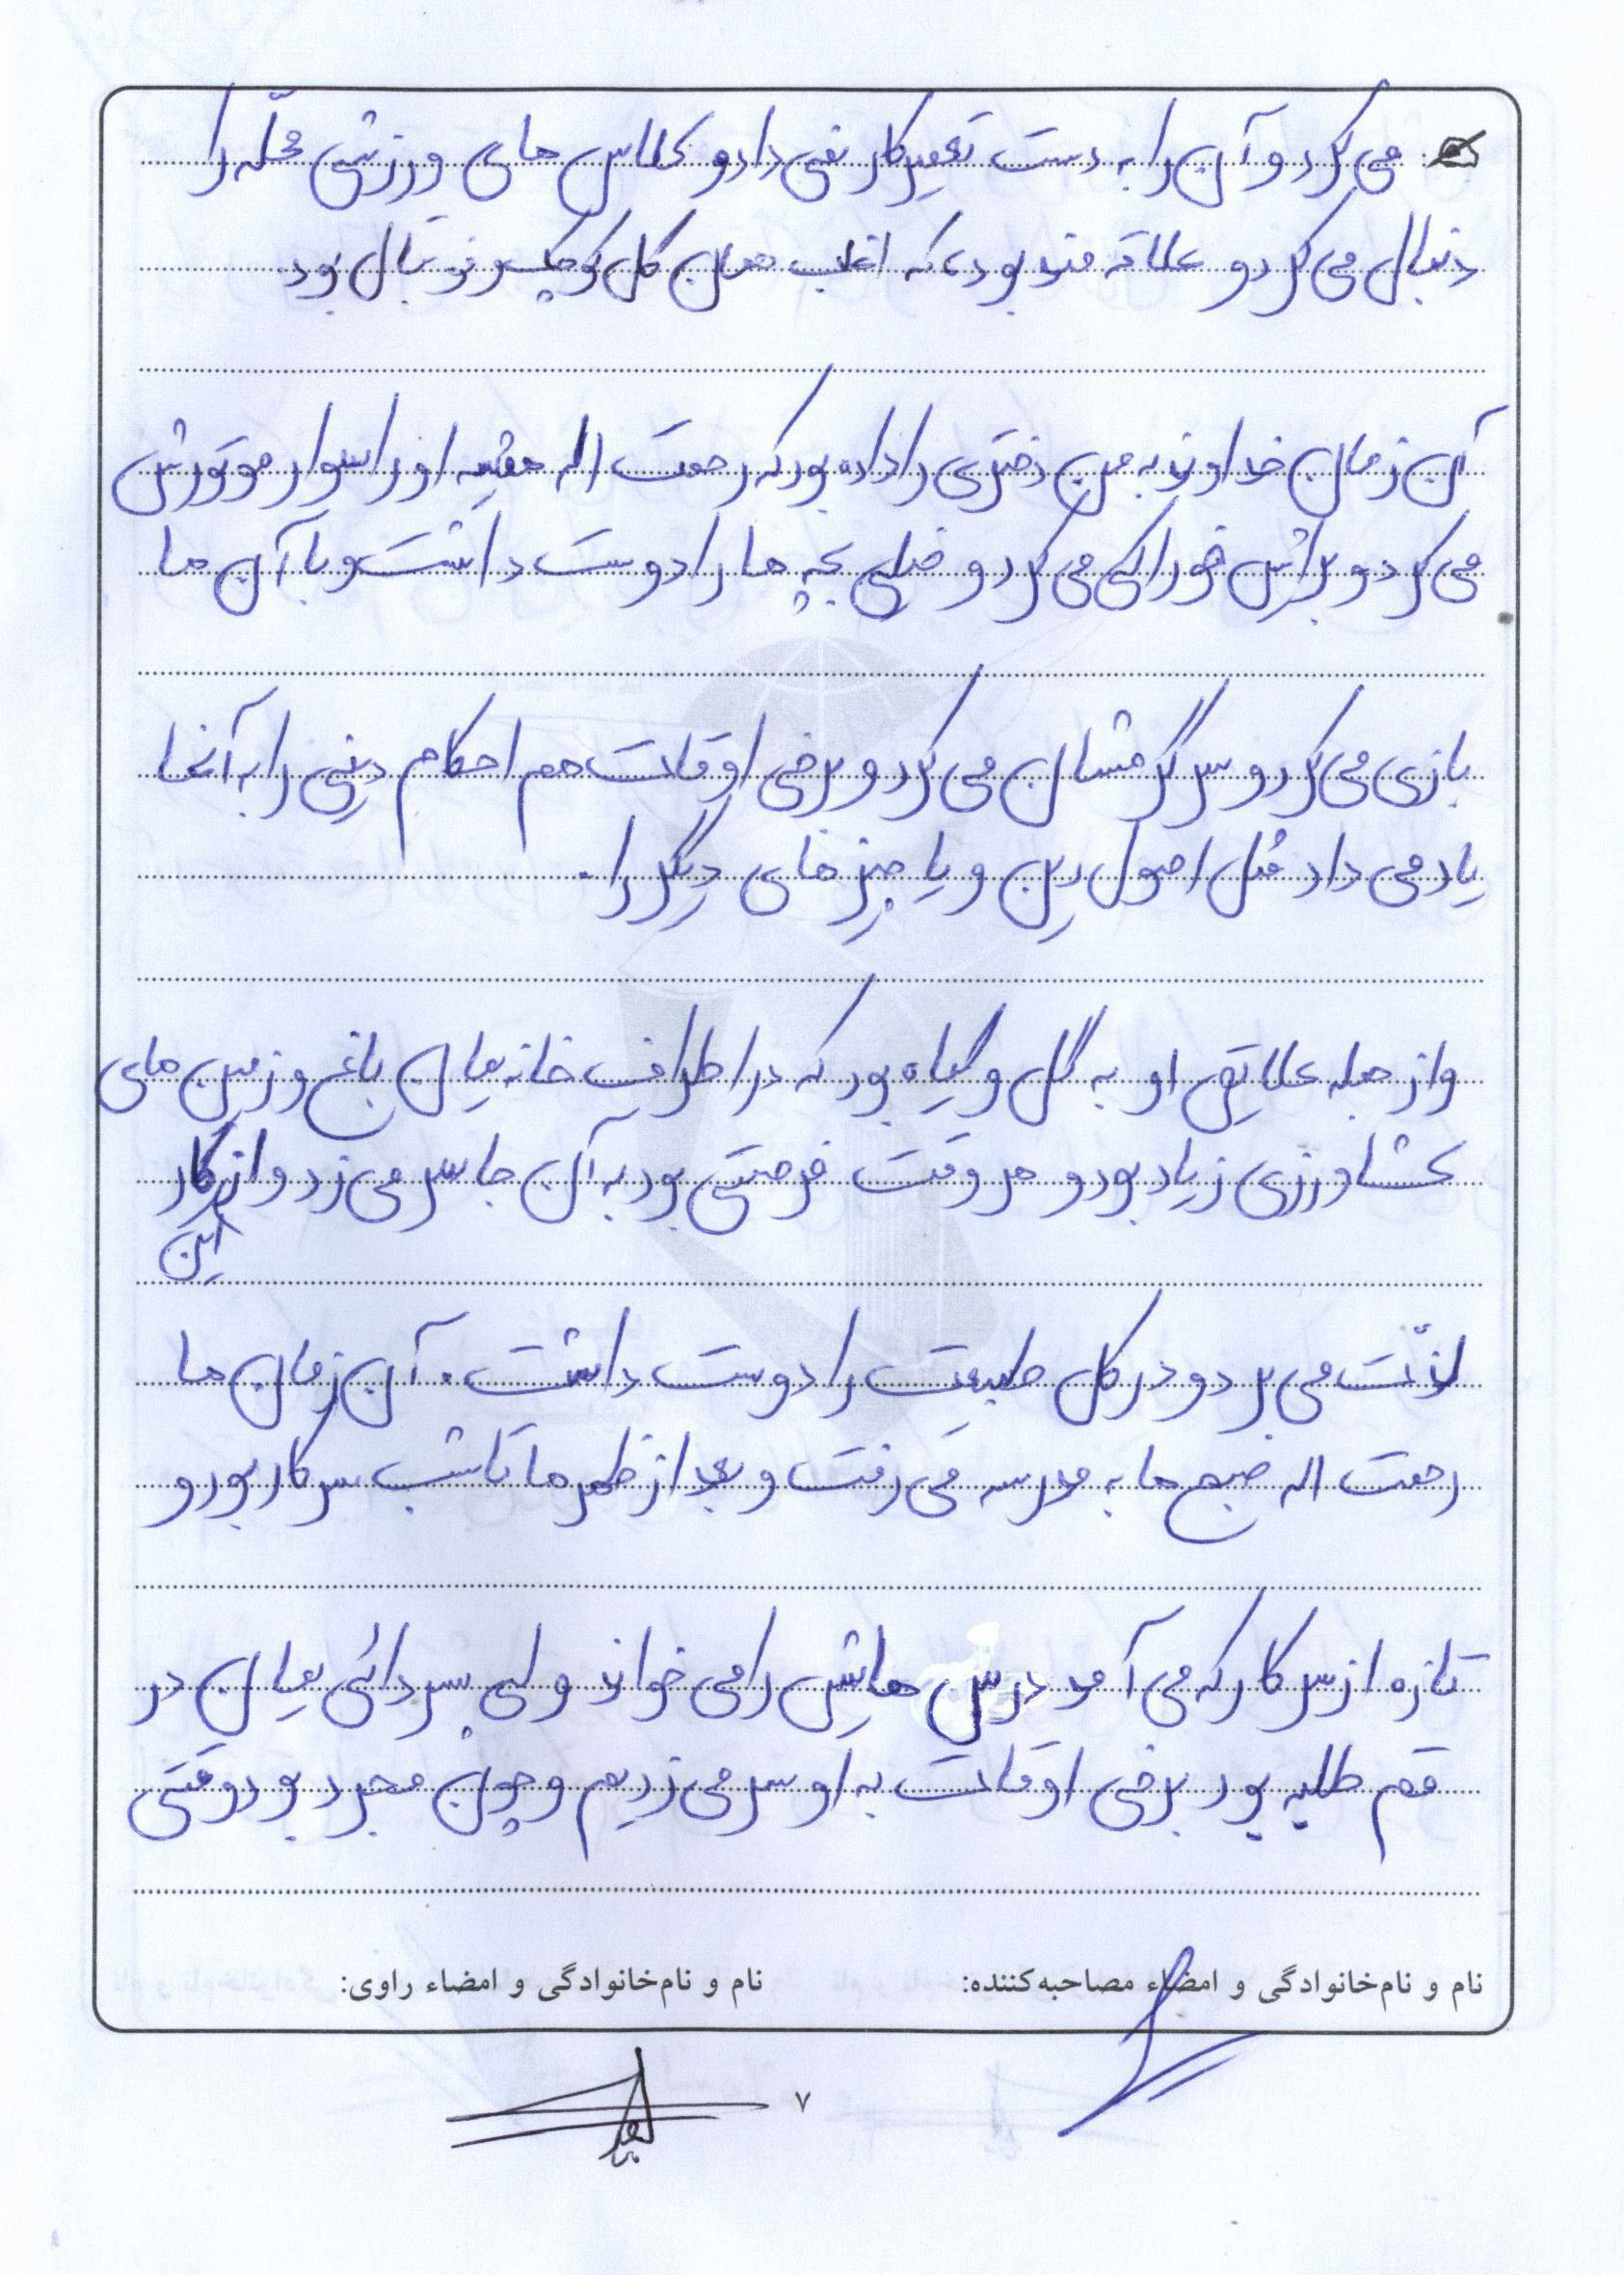 می کرد و آن را به دست تعمیرکار نمی داد و کلاس های ورزشی محلّه را
دنبال می کرد و علاقه مند بود، که اغلب همان گل کوچک و فوتبال بود.
آن زمان خداوند به من دختری را داده بود که رحمت اله همیشه او را سوار موتورش
می کرد و برایش خوراکی می کرد و خیلی بچه ها را دوست داشت و با آن ها
بازی می کرد و سرگرمشان می کرد و برخی اوقات هم احکام دینی را به آنها
یاد می داد مثل اصول دین و یا چیزهای دیگر را.
و از جمله علایق او به گل و گیاه بود که در اطراف خانه یمان باغ و زمین های
کشاورزی زیاد بود و هر وقت فرصتی بود به آن جا سر می زد و از این کار
لذّت می برد و در کل طبیعت را دوست داشت. آن زمان ها
رحمت اله صبح ها به مدرسه می رفت و بعد از ظهر ها تا شب سر کار بود و
تازه از سر کار که می آمد درس هایش را می خواند ولی پسر دائی یمان در
قم طلبه بود برخی اوقات به او سر می زدیم و چون مجرد بود وقتی
نام و نام‌خانوادگی و امضاء مصاحبه‌کننده: نام و نام‌خانوادگی و امضاء راوی:
۷